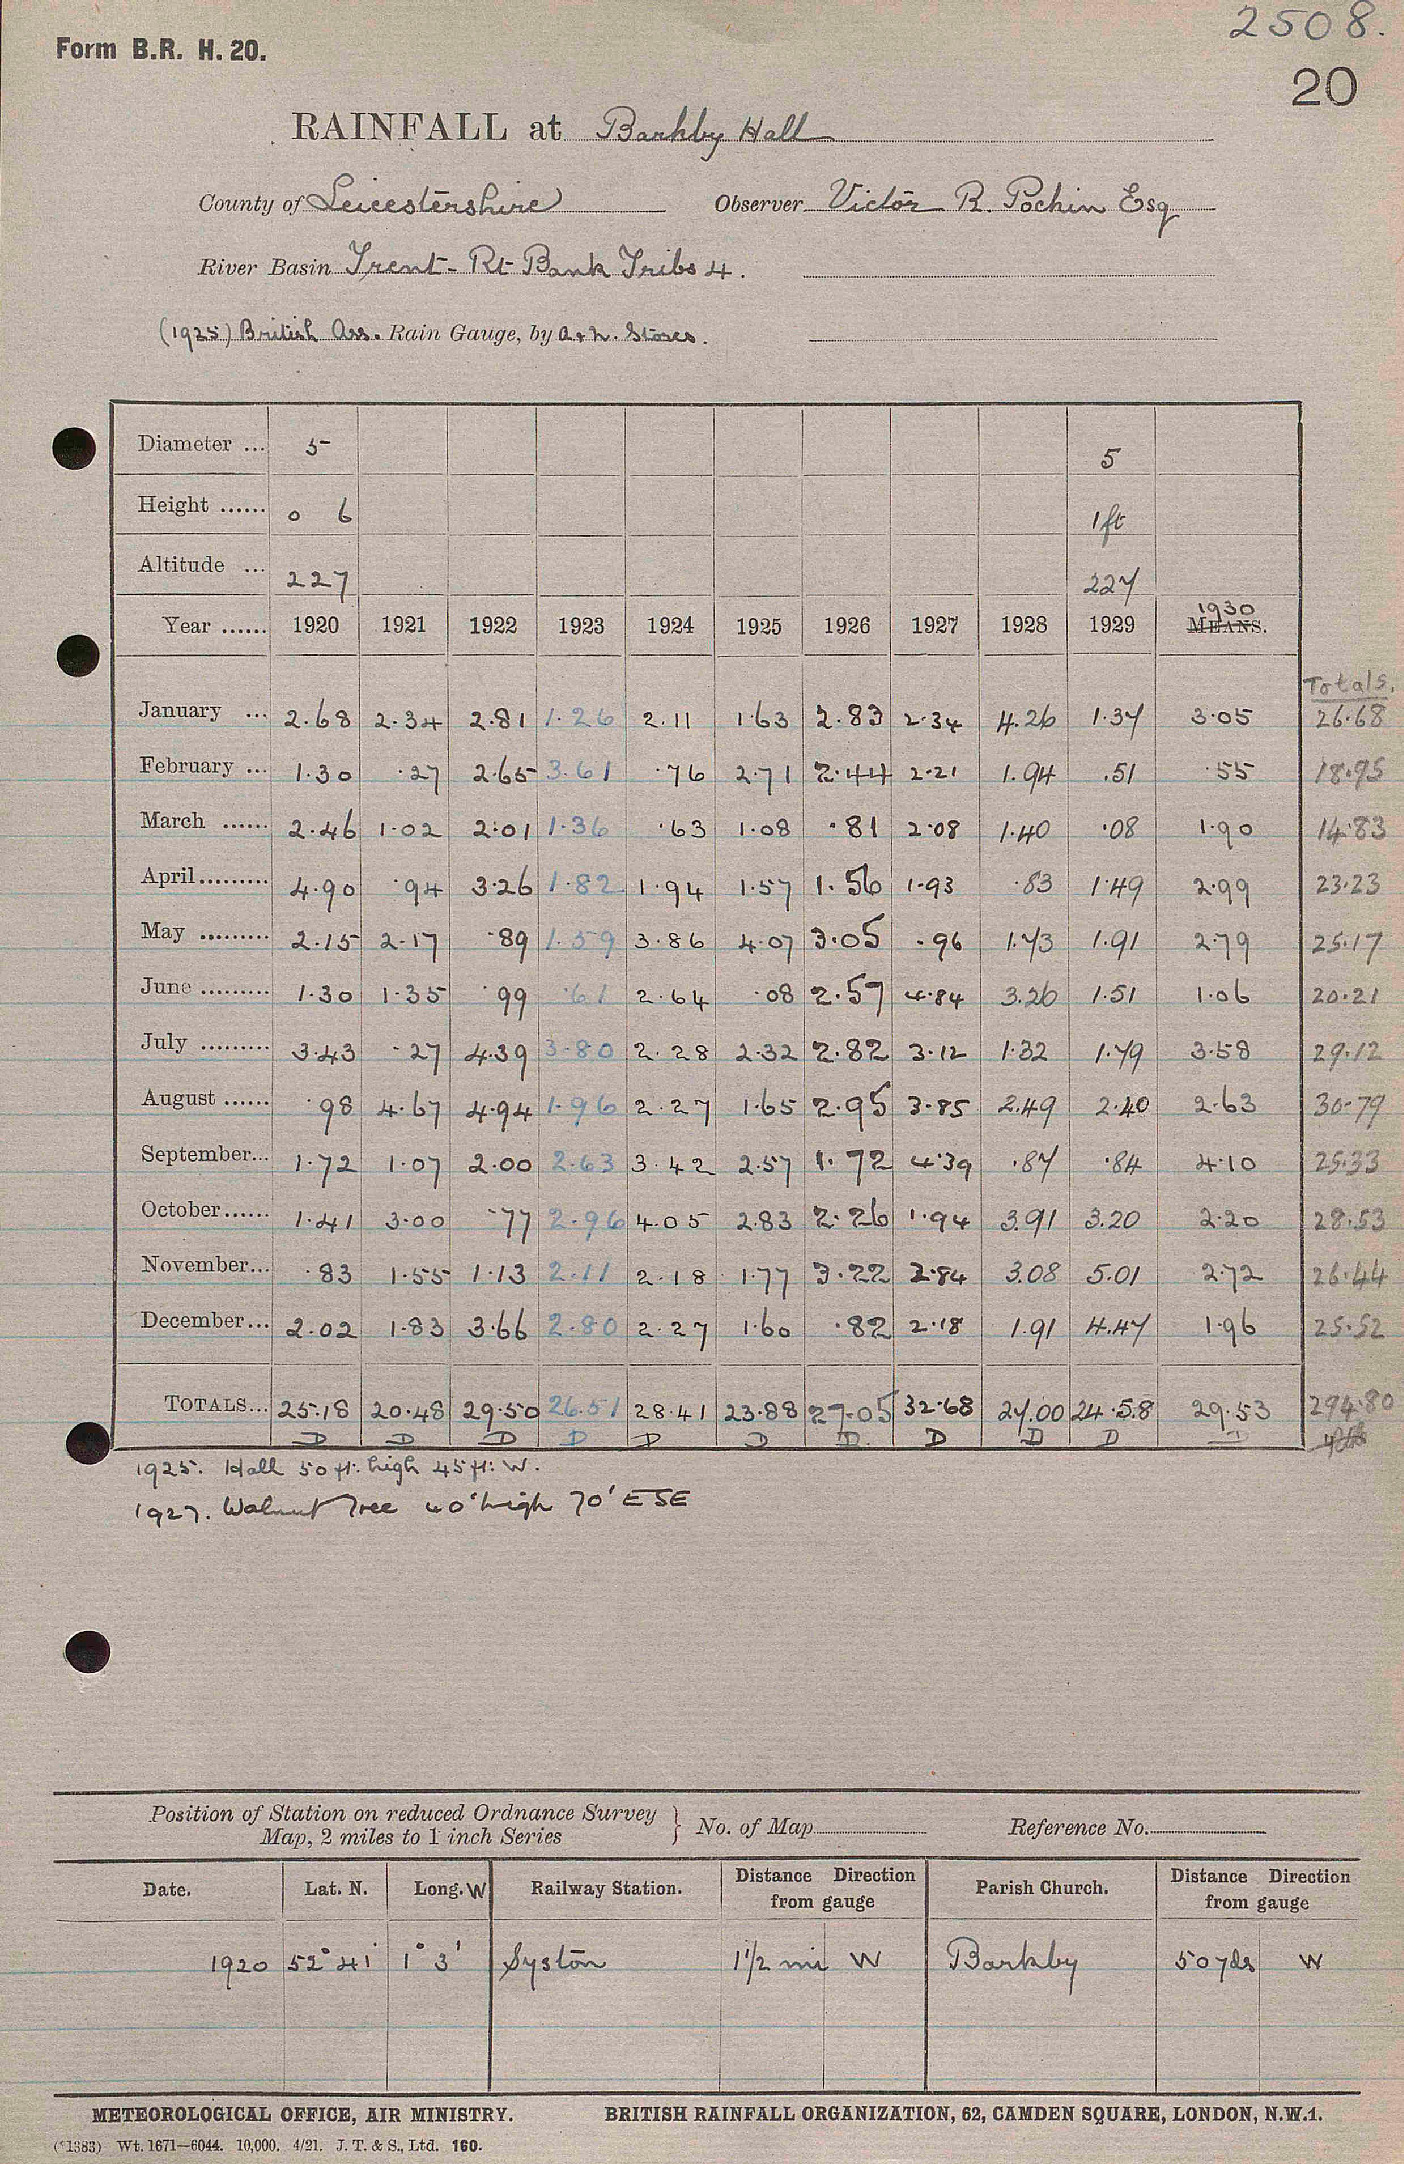 2508.
Form B.R. H. 20.
20
RAINFALL at Barkby Hall
County of Leicestershire Observer Victor R. Pochin Esq
River Basin Trent - Rt Bank Tribs 4.
(1925) British Ass. Rain Gauge, by A & N. Stores.
Diameter ... 5 5
Height ...... 0 6 1 ft
Altitude ... 227 227
Year ...... 1920 1921 1922 1923 1924 1925 1926 1927 1928 1929 1930 MEANS.
Totals.
January ... 2.68 2.34 2.81 1.26 2.11 1.63 2.83 2.34 4.26 1.37 3.05 26.68
February ... 1.30 .27 2.65 3.61 .76 2.71 2.44 2.21 1.94 .51 .55 18.95
March ...... 2.46 1.02 2.01 1.36 .63 1.08 .81 2.08 1.40 .08 1.90 14.83
April ......... 4.90 .94 3.26 1.82 1.94 1.57 1.56 1.93 .83 1.49 2.99 23.23
May ......... 2.15 2.17 .89 1.59 3.86 4.07 3.05 .96 1.73 1.91 2.79 25.17
June ......... 1.30 1.35 .99 .61 2.64 .08 2.57 4.84 3.26 1.51 1.06 20.21
July ......... 3.43 .27 4.39 3.80 2.28 2.32 2.82 3.12 1.32 1.79 3.58 29.12
August ...... .98 4.67 4.94 1.96 2.27 1.65 2.95 3.85 2.49 2.40 2.63 30.79
September... 1.72 1.07 2.00 2.63 3.42 2.57 1.72 4.39 .87 .84 4.10 25.33
October...... 1.41 3.00 .77 2.96 4.05 2.83 2.26 1.94 3.91 3.20 2.20 28.53
November... .83 1.55 1.13 2.11 2.18 1.77 3.22 2.84 3.08 5.01 2.72 26.44
December... 2.02 1.83 3.66 2.80 2.27 1.60 .82 2.18 1.91 4.47 1.96 25.52
TOTALS... 25.18 20.48 29.50 26.51 28.41 23.88 27.05 32.68 27.00 24.58 29.53 294.80
D D D D D D D D D D D
1925. Hall 50 ft. high 45 ft. W.
1927. Walnut Tree 40' high 70' ESE
Position of Station on reduced Ordnance Survey Map, 2 miles to 1 inch Series } No. of Map Reference No.
Date. Lat. N. Long. W Railway Station. Distance Direction from gauge Parish Church. Distance Direction from gauge
1920 52° 41' 1° 3' Syston 1 1/2 mi W Barkby 50 yds W
METEOROLOGICAL OFFICE, AIR MINISTRY. BRITISH RAINFALL ORGANIZATION, 62, CAMDEN SQUARE, LONDON, N.W.1.
(*1383) Wt. 1671—6044. 10,000. 4/21. J. T. & S., Ltd. 160.